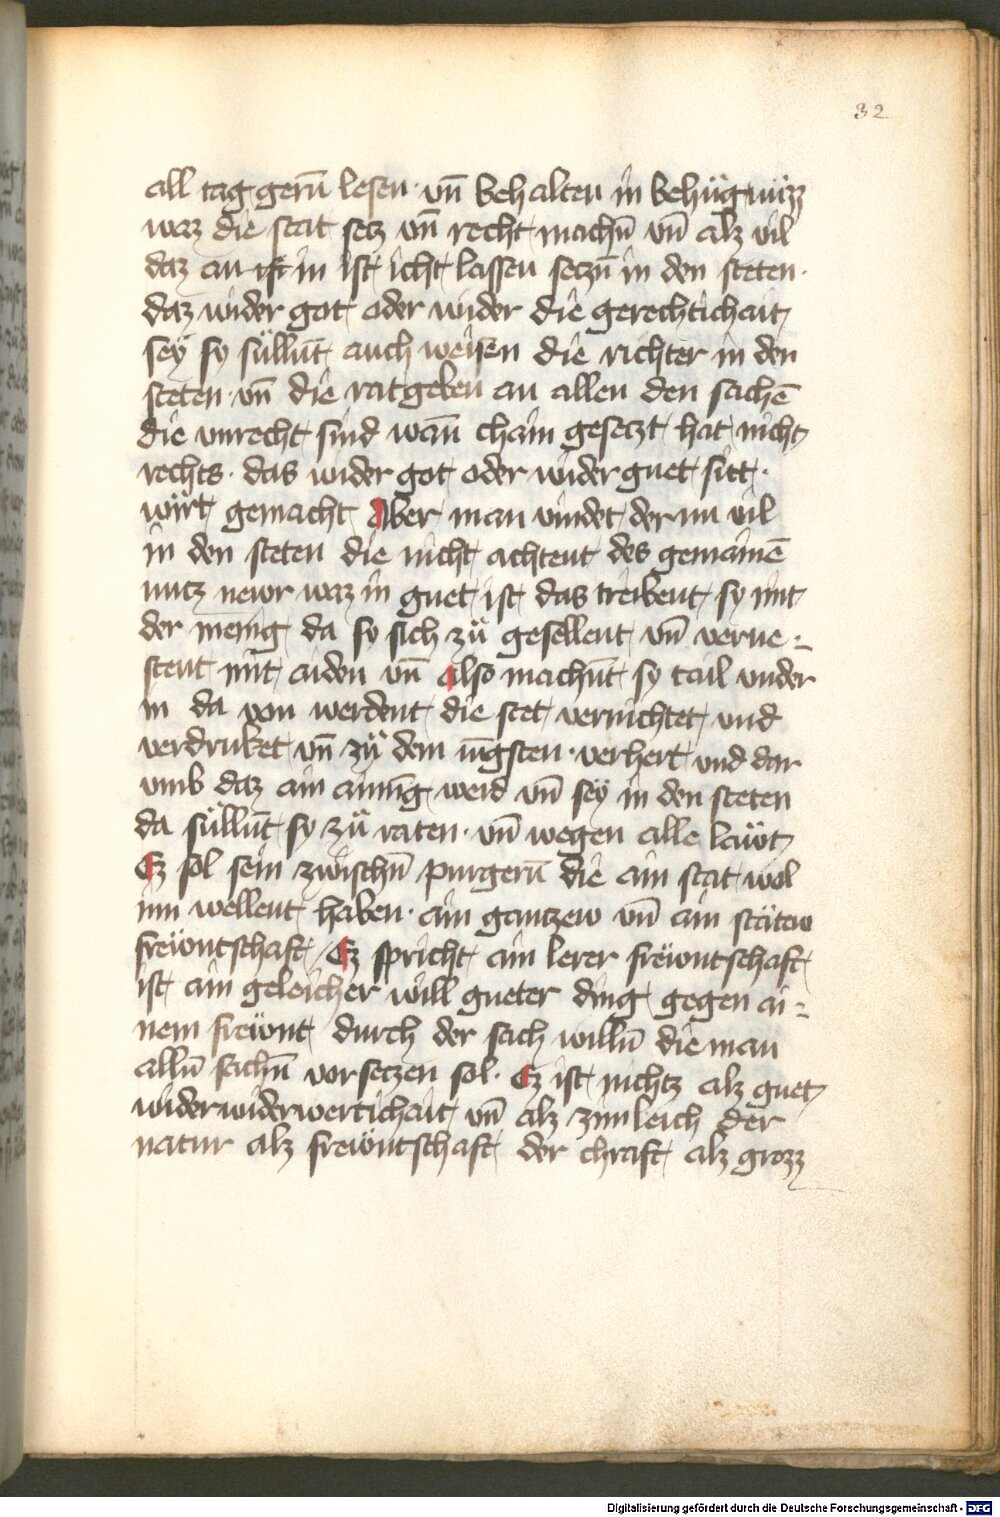 32
all tag gerñ lesen · vñ behalten in behügnüzz
waz die stat setz vñ recht machñ vñ alz vil
daz an in ist icht lassen seczñ in den steten ·
daz wider got oder wider die gerechtichait
seÿ sy süllñt auch weisen die richter in den
steten · vñ die ratgeben an allen den sachē
die vnrecht sind wañ chain gesetzt hat nicht
rechts · das wider got oder wider guet sitt ·
wirt gemacht Aber man vindet der nu vil
in den steten die nicht achtent des gemainē
nutz newr waz in guet ist das treibent sy mit
der menig da sy sich zů gesellent vñ verne-
stent mit aiden vñ also machñt sy tail vnder
in da von werdent die stet vernichtet vnd
verdruket vñ zů dem iūgsten · verhert vnd dar
vmb daz ain ainūg werd vñ seÿ in den steten
da süllñt sy zů raten · vñ wegen alle läwt
Ez sol sein zwischñ purgerñ die ain stat wol
inn wellent haben · ain gantzew vñ ain stätew
frëwntschaft / Ez spricht ain lerer frëwntschaft
ist ain geleicher will gueter ding gegen ai-
nem frëwnt durch der sach willñ die man
allñ sachñ vorsetzen sol · Ez ist nichtz alz guet
wider widerwertichait vñ alz zimleich der
natur alz frëwntschaft der chraft alz grozz
Digitalisierung gefördert durch die Deutsche Forschungsgemeinschaft - DFG